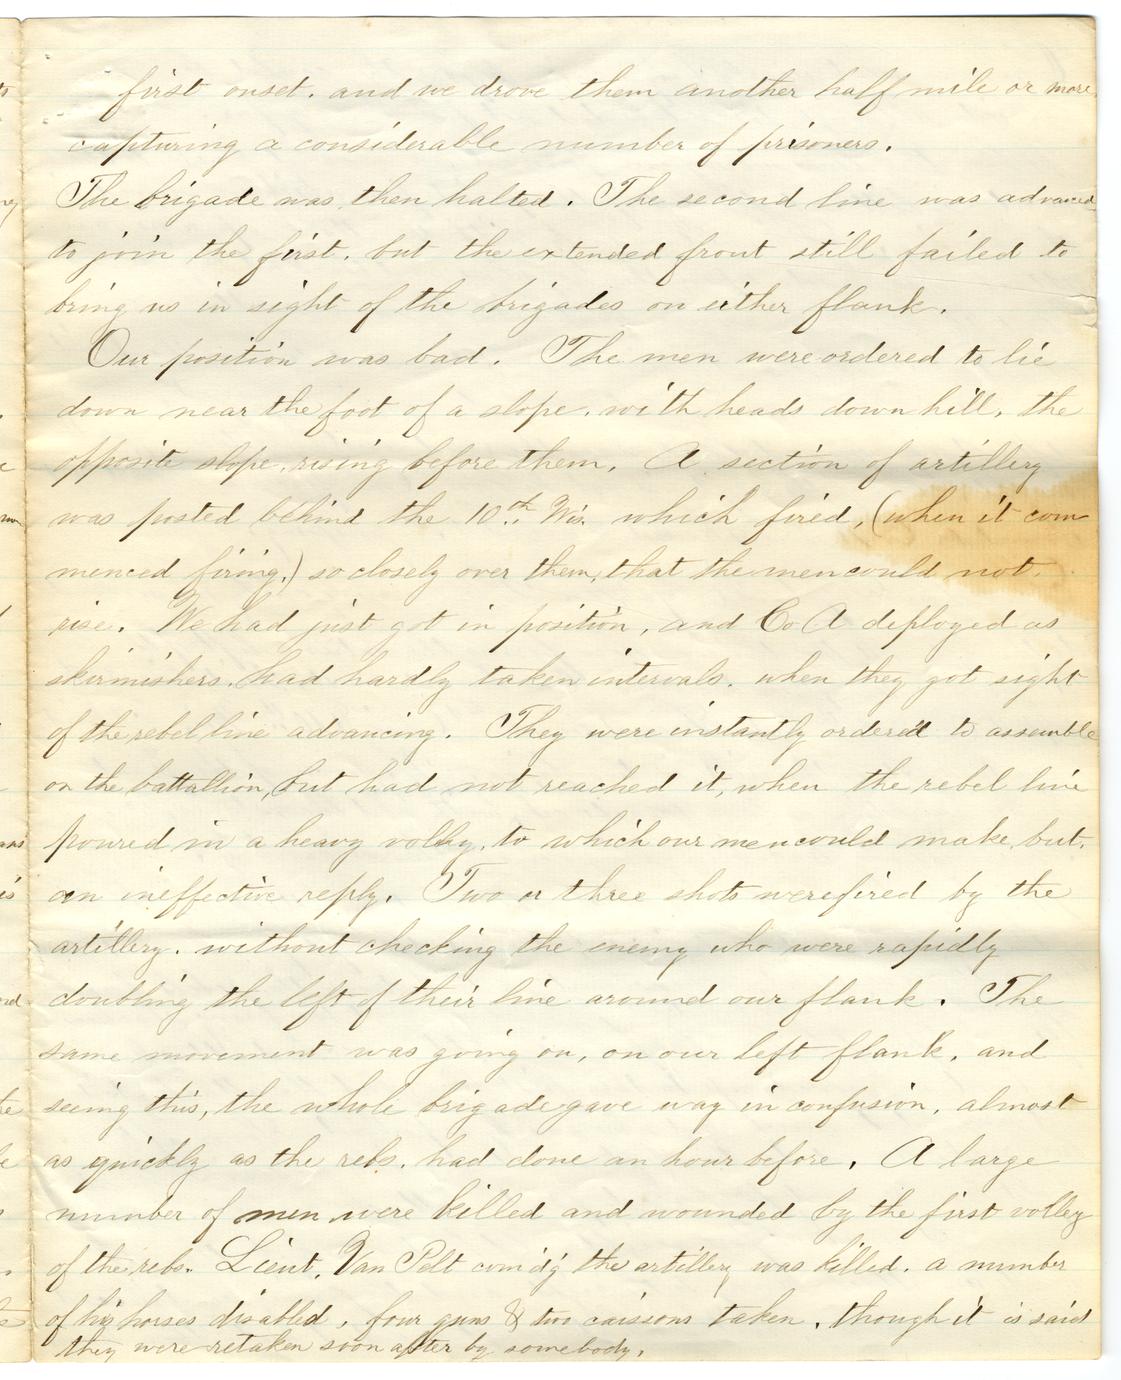 first onset. and we drove them another half mile or more,
capturing a considerable number of prisoners.
The brigade was then halted. The second line was advanced
to join the first. but the extended front still failed to
bring us in sight of the brigades on either flank.
Our position was bad. The men were ordered to lie
down near the foot of a slope. with heads down hill, the
opposite slope, rising before them. A section of artillery
was posted behind the 10th Wis. which fired, (when it com
menced firing,) so closely over them, that the men could not.
rise. We had just got in position, and Co A deployed as
skirmishers. had hardly taken intervals. when they got sight
of the rebel line advancing. They were instantly ordered to assemble
on the battallion, but had not reached it, when the rebel line
poured in a heavy volley, to which our men could make but.
an ineffective reply. Two or three shots were fired by the
artillery. without checking the enemy who were rapidly
doubling the left of their line around our flank. The
same movement was going on, on our left flank, and
seeing this, the whole brigade gave way in confusion, almost
as quickly as the rebs. had done an hour before. A large
number of men were killed and wounded by the first volley
of the rebs. Lieut. Van Pelt com'd'g the artillery was killed. a number
of his horses disabled, four guns & two caissons taken, though it is said
they were retaken soon after by somebody.